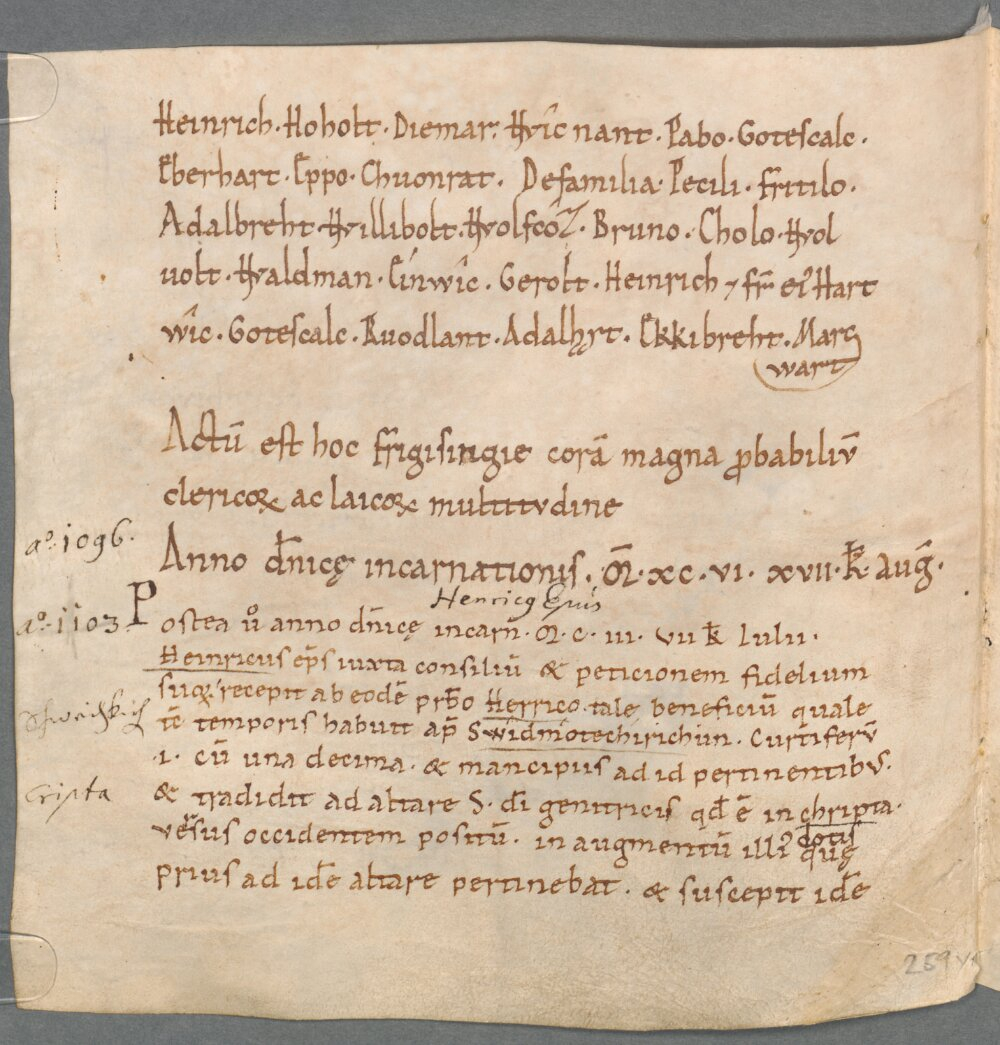 Heinrich · Hoholt · Diemar · Wîcnant · Pabo · Gotescalc ·
Eberhart · Eppo · Chuonrat · De familia · Pecili · fritilo ·
Adalbreht · Willibolt · Wolfcoz · Bruno · Cholo · Wol
uolt · Waldman · Einwîc · Gerolt · Heinrich ⁊ fr̄ ei᾿ Hart
wîc · Gotescalc · Ruodlant · Adalhyrt · Ekkibreht · Marq
wart
Actū est hoc frigisingie corā magna ꝓbabiliū
clericoꝝ ac laicoꝝ multitudine
aº. 1096.
Anno dn̄icę incarnationis. M̄. xc. vi. xvii. k̄. aug̅.
Henricꝯ Epūs
aº. 1103
Postea u͛o anno dn̄icę incarn̄. M̄. c. iii. vii k̄ Iulii.
Heinricus ep̄s iuxta consiliū & peticionem fidelium
suoꝝ recepit ab eodē prb̄o Herrico tale beneficiū quale
tc̄ temporis habuit ap̄ Swidmotechirichun. Curtiferū
.i. cū una decima. & mancipiis ad id pertinentibus.
cripta
& tradidit ad altare S. dī genitricis qd̄ ē in chripta.
uersus occidentem positū. in augmentū illi᾿ dotis quę
prius ad idē altare pertinebat. & suscepit idē
259v